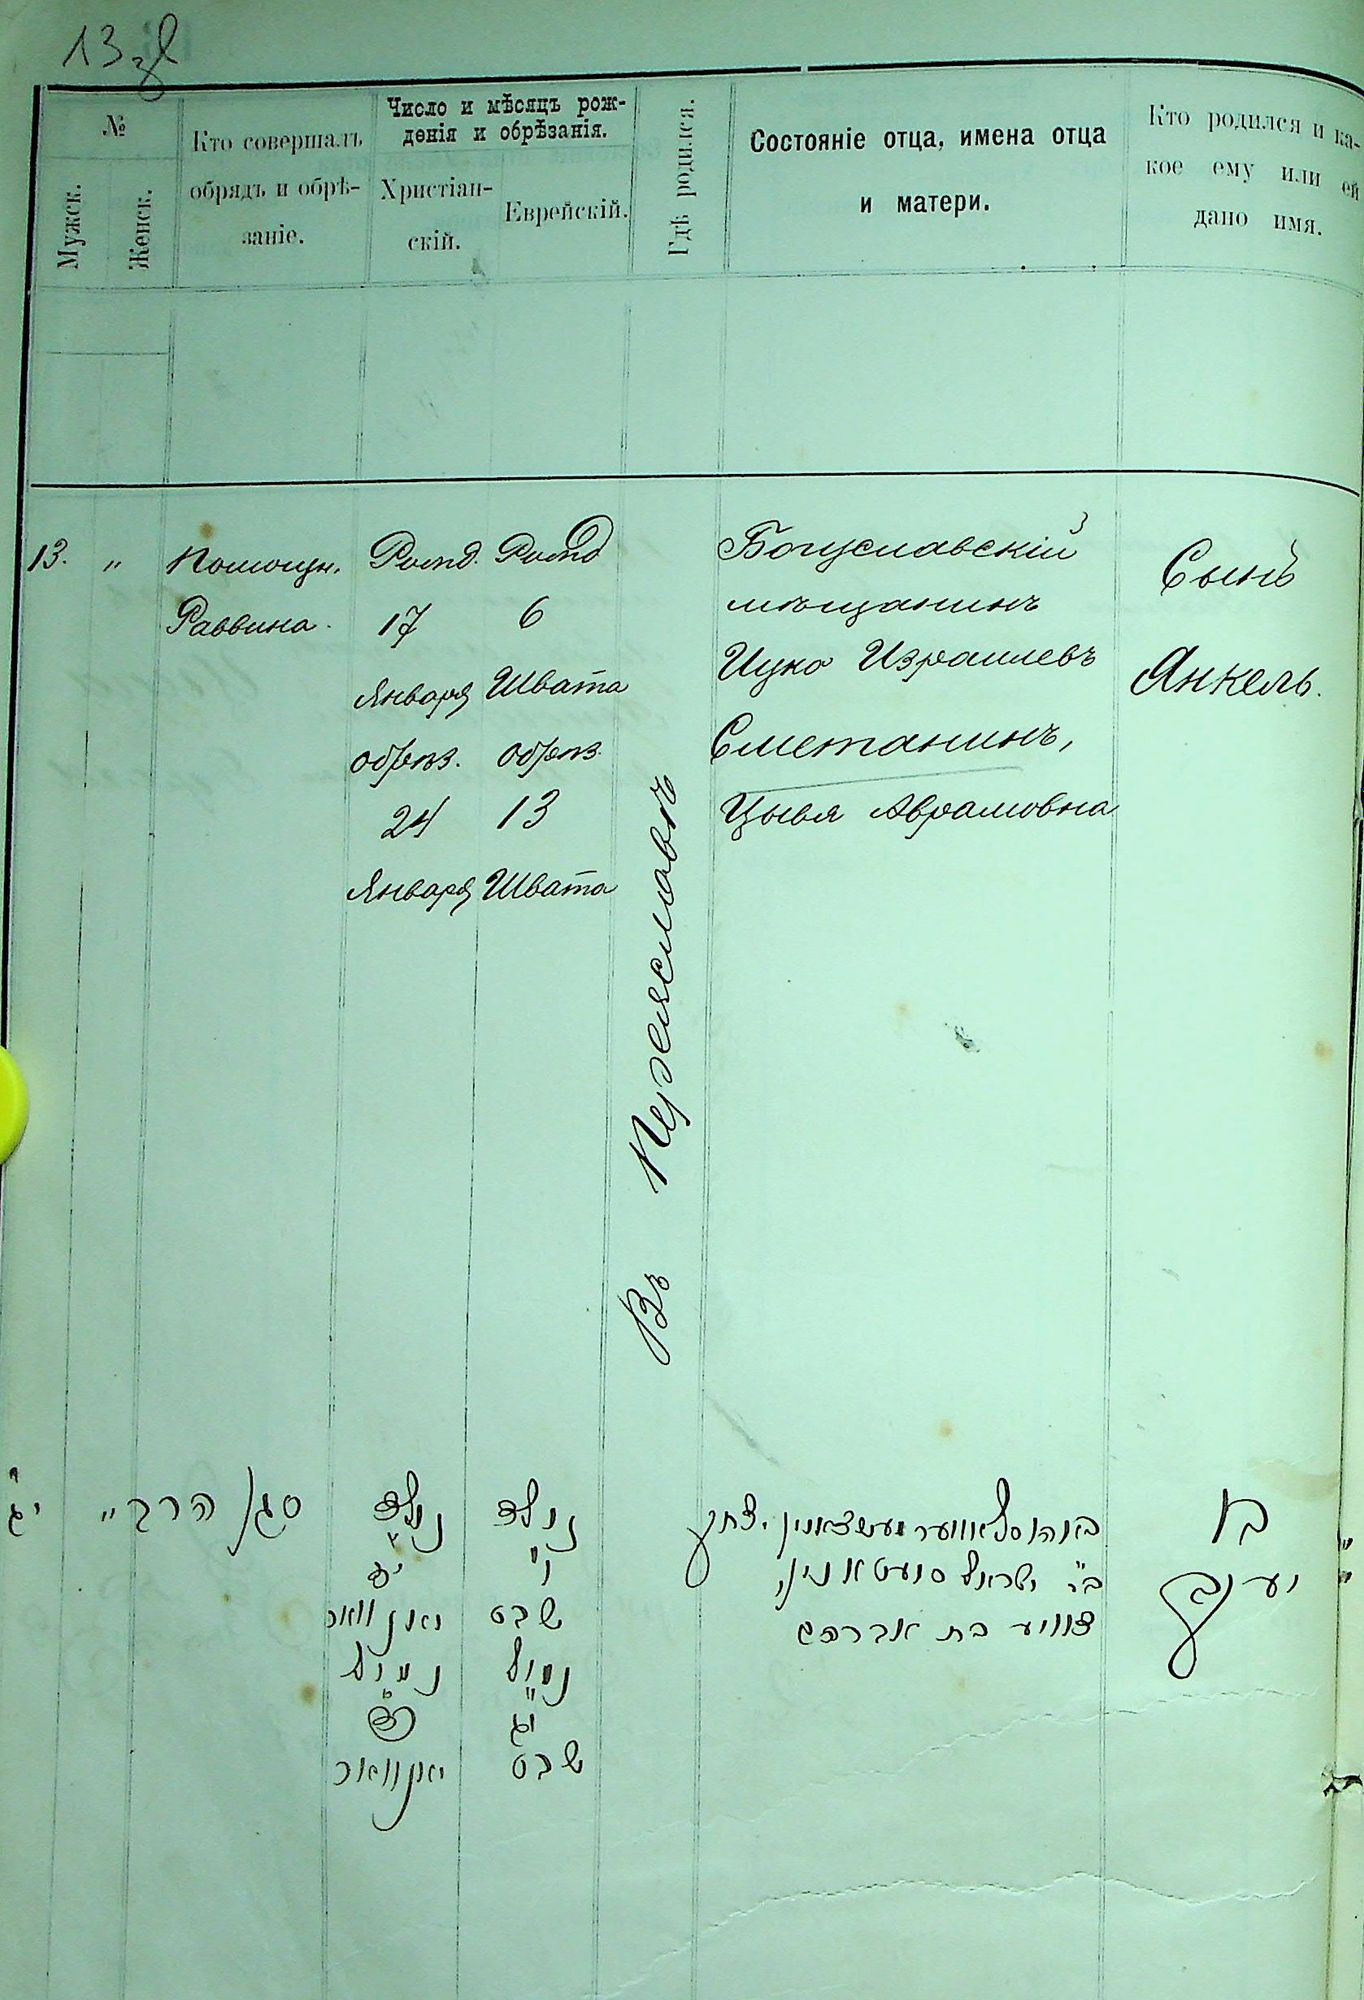 13
№
Мужск.
Женск.
Кто совершалъ
обрядъ и обрѣ-
заніе.
Число и мѣсяцъ рож-
денія и обрѣзанія.
Христіан-
скій.
Еврейскій.
Гдѣ родился.
Состояніе отца, имена отца
и матери.
Кто родился и ка-
кое ему или ей
дано имя.
13. "
Помощн.
Раввина.
Рожд.
17
Января
обрѣз.
24
Января
Рожд
6
Швата
обрѣз.
13
Швата
Въ Переяславѣ
Богуславскій
мѣщанинъ
Ицко Израилевъ
Сметанинъ,
Цывя Аврамовна
Сынъ
Янкель.
יג "
סגן הרב
נולד
י"ז
יאנוואר
נימול
כ"ד
יאנוואר
נולד
ו'
שבט
נימול
י"ג
שבט
יצחק
ב"ר ישראל סמעטאנין,
צוויע בת אברהם
בן
יענקל